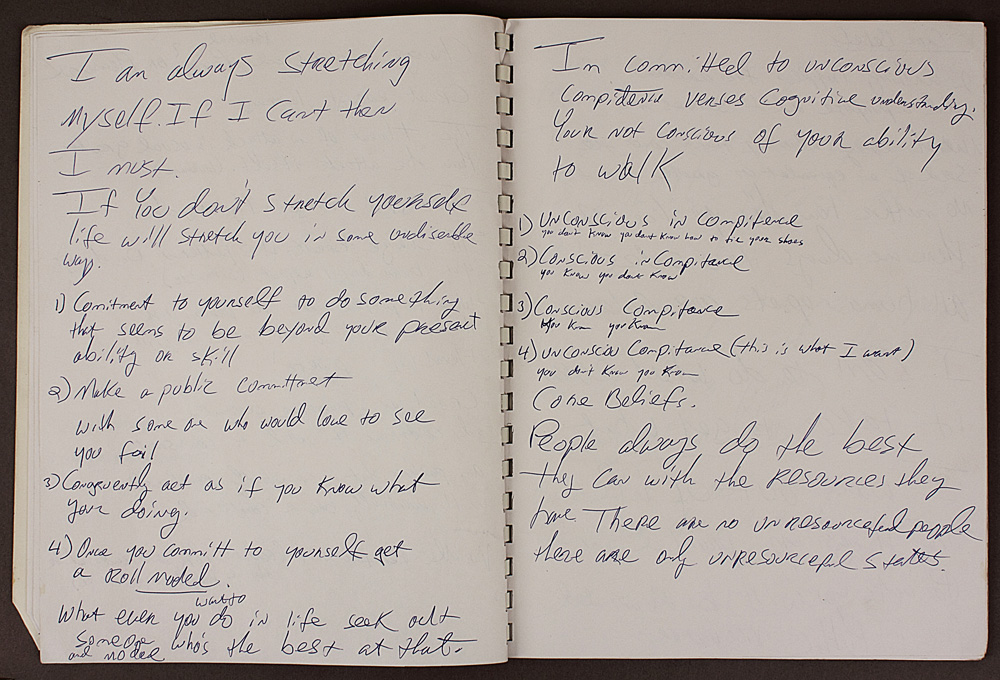 I am always stretching
myself. If I Can't then
I must.
If You don't stretch yourself
life will stretch you in some undiserable
ways.
1) Comitment to yourself to do something
that seems to be beyond your present
ability or skill
2) Make a public committment
with some one who would love to see
you fail
3) Congruently act as if you know what
your doing.
4) Once you committ to yourself get
a roll moded.
want to
What ever you do in life seek out
someone who's the best at that.
and model
Im committed to unconscious
Compidence verses Cognitive understanding.
Your not conscious of your ability
to walk
1) UNConscious in Compitence
you don't know you dont know how to tie your shoes
2) Conscious in Compitance
you know you dont know
3) Conscious Compitance
you know you know
4) unconsciou Compitance (this is what I want)
you don't know you know
Core Beliefs.
People always do the best
they can with the Resources they
have. There are no unresourceful people
there are only unresourceful states.